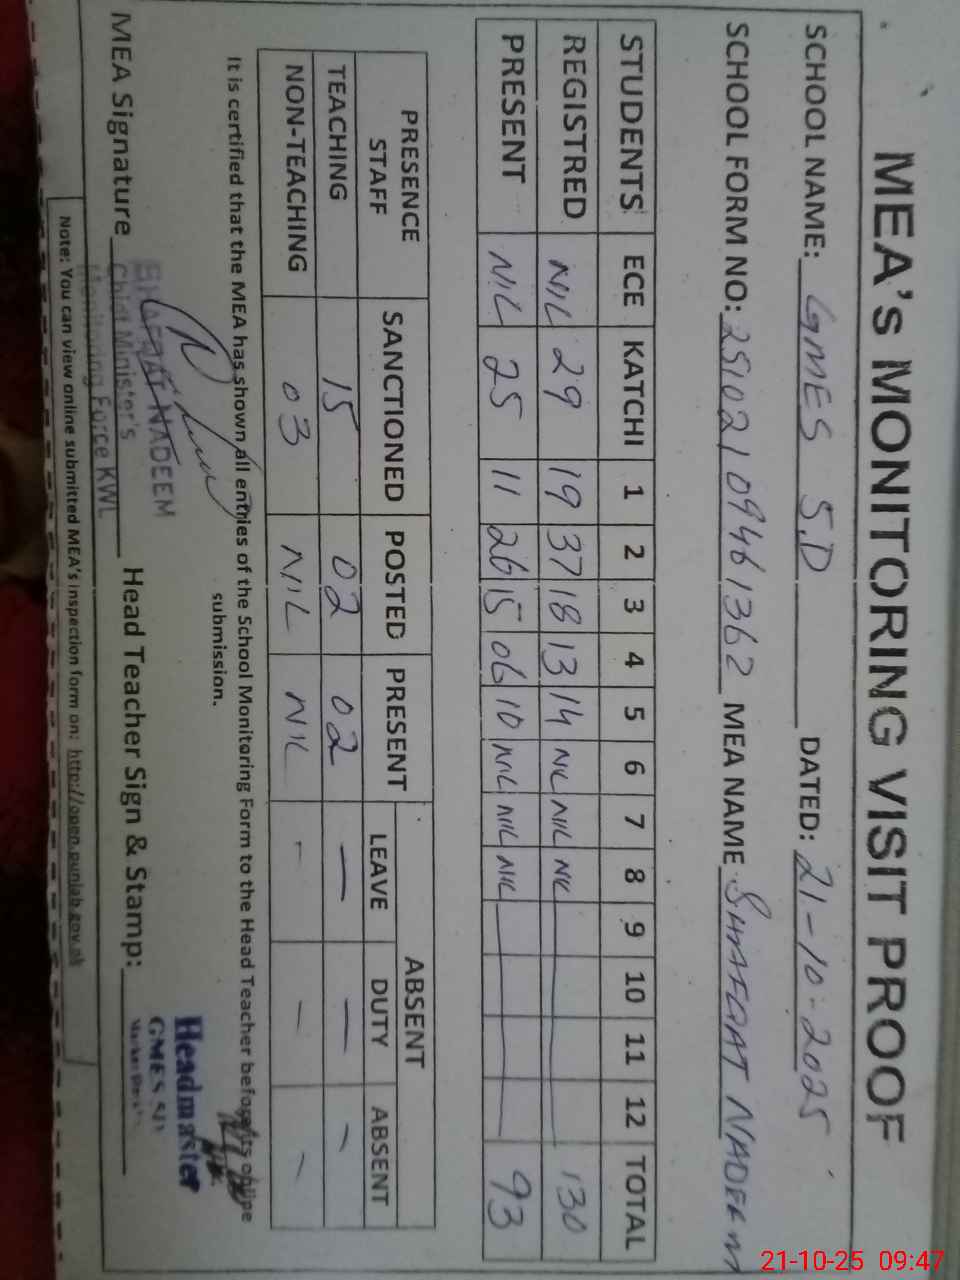 MEA's MONITORING VISIT PROOF
SCHOOL NAME: GMES 5.D DATED: 21-10-2025
SCHOOL FORM NO: 25102109461362 MEA NAME SHAFQAT NADEEM
STUDENTS ECE KATCHI 1 2 3 4 5 6 7 8 9 10 11 12 TOTAL
REGISTRED NIL 29 19 37 18 13 14 NIL NIL NIL 130
PRESENT NIL 25 11 26 15 06 10 NIL NIL NIL 93
PRESENCE STAFF SANCTIONED POSTED PRESENT ABSENT
LEAVE DUTY ABSENT
TEACHING 15 02 02 — — —
NON-TEACHING 03 NIL NIL - — —
It is certified that the MEA has shown all entries of the School Monitoring Form to the Head Teacher before its online
submission.
MEA Signature Head Teacher Sign & Stamp:
SHAFQAT NADEEM
Chief Minister's
Monitoring Force KWL
Headmaster
GMES
Note: You can view online submitted MEA's inspection form on: http://open.punjab.gov.pk
21-10-25 09:47